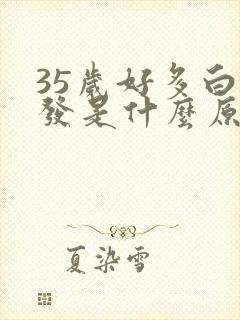 35歲好多白
發是什麼原
夏染雪